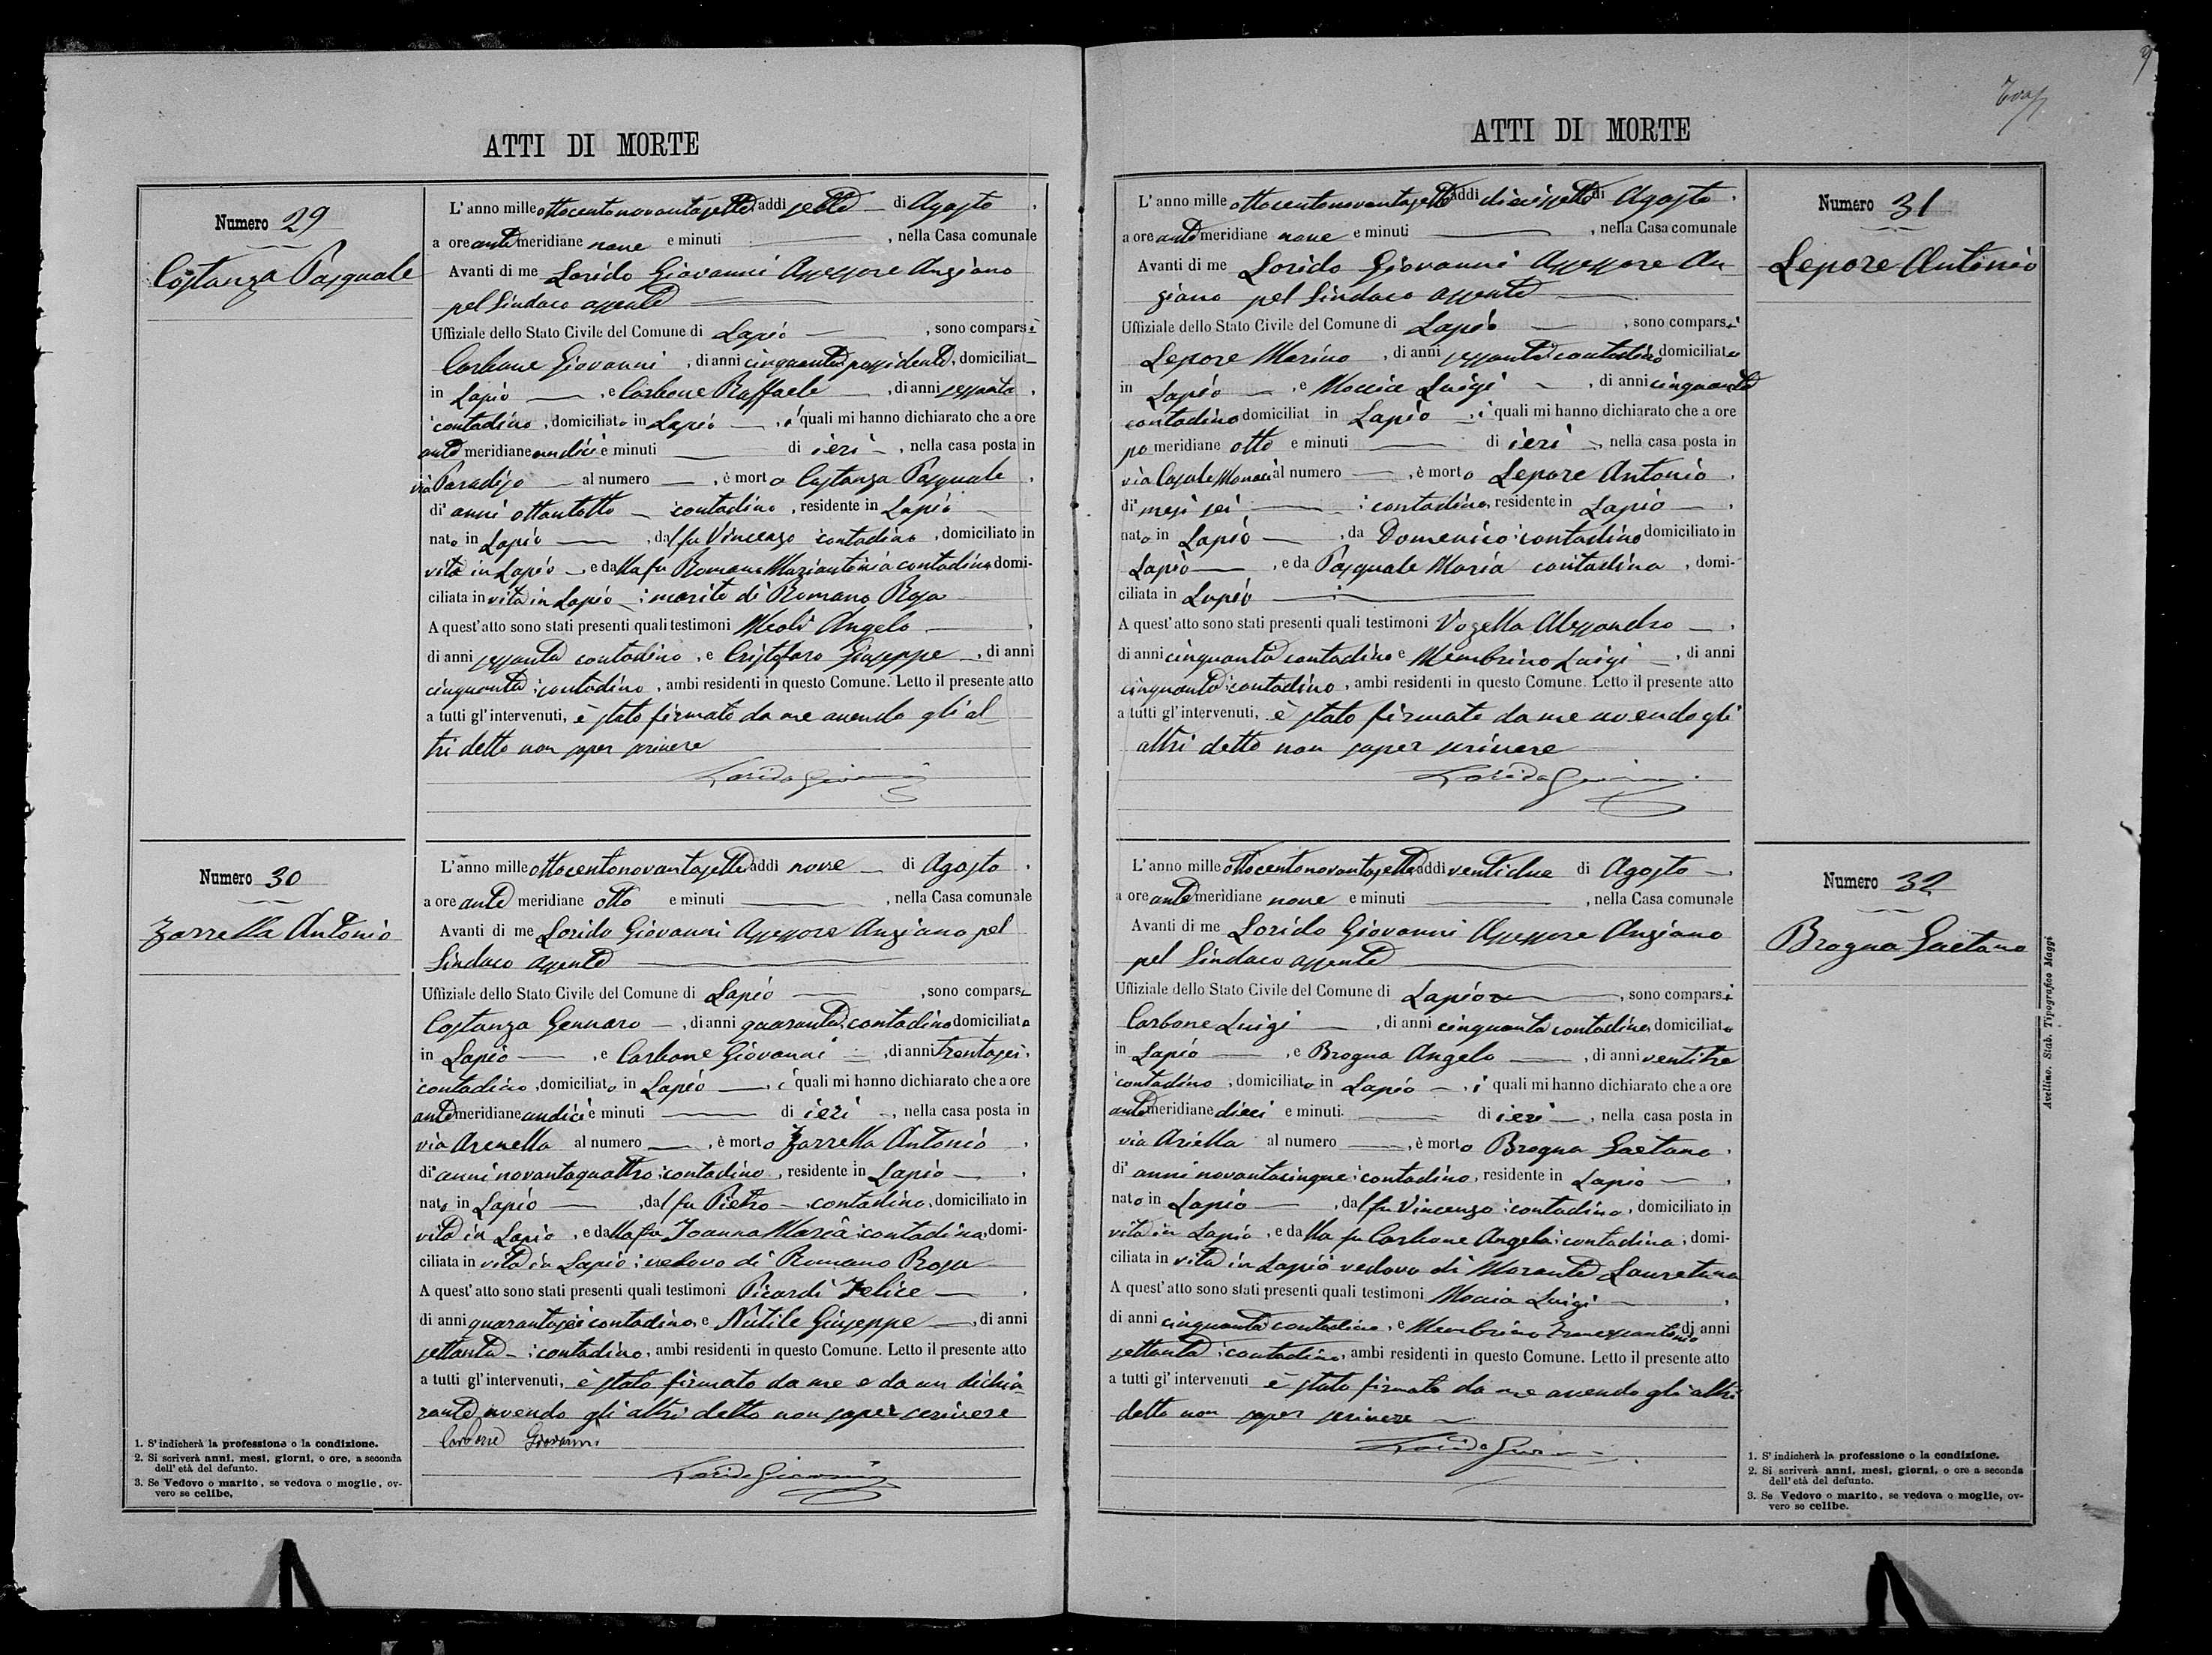 ATTI DI MORTE
Numero 29
Costanza Pasquale
L'anno mille ottocentonovantasette, addi sette di Agosto,
a ore ante meridiane nove e minuti , nella Casa comunale
Avanti di me Lorido Giovanni Assessore Anziano
pel Sindaco assente
Uffiziale dello Stato Civile del Comune di Lapio , sono comparsi
Carbone Giovanni, di anni cinquanta, possidente, domiciliat
in Lapio , e Carbone Raffaele , di anni sessanta,
contadino, domiciliato in Lapio , i quali mi hanno dichiarato che a ore
ante meridiane undici e minuti di ieri , nella casa posta in
via Paradiso al numero , è morto Costanza Pasquale,
di anni ottantotto contadino, residente in Lapio
nato in Lapio , dal fu Vincenzo contadino, domiciliato in
vita in Lapio , e dalla fu Romano Mariantonia contadina domi-
ciliata in vita in Lapio ; marito di Romano Rosa
A quest'atto sono stati presenti quali testimoni Meoli Angelo ,
di anni sessanta contadino, e Cristofaro Giuseppe , di anni
cinquanta; contadino, ambi residenti in questo Comune. Letto il presente atto
a tutti gl'intervenuti, è stato firmato da me avendo gli al
tri detto non saper scrivere
Lorido Giovanni
Numero 30
Zarrella Antonio
L'anno mille ottocentonovantasette, addi nove di Agosto,
a ore ante meridiane otto e minuti , nella Casa comunale
Avanti di me Lorido Giovanni Assessore Anziano pel
Sindaco assente
Uffiziale dello Stato Civile del Comune di Lapio , sono comparsi
Costanza Gennaro , di anni quaranta, contadino domiciliato
in Lapio , e Carbone Giovanni , di anni trentasei,
contadino, domiciliato in Lapio , i quali mi hanno dichiarato che a ore
ante meridiane undici e minuti di ieri , nella casa posta in
via Arenella al numero , è morto Zarrella Antonio ,
di anni novantaquattro; contadino, residente in Lapio ,
nato in Lapio , dal fu Pietro , contadino, domiciliato in
vita in Lapio , e dalla fu Joanna Maria; contadina, domi-
ciliata in vita in Lapio; vedovo di Romano Rosa
A quest'atto sono stati presenti quali testimoni Picardi Felice ,
di anni quarantasei contadino, e Nutile Giuseppe , di anni
settanta ; contadino, ambi residenti in questo Comune. Letto il presente atto
a tutti gl'intervenuti, è stato firmato da me e da un dichia
rante avendo gli altri detto non saper scrivere
Carbone Giovanni
Lorido Giovanni
1. S'indicherà la professione o la condizione.
2. Si scriverà anni, mesi, giorni, o ore, a seconda
dell'età del defunto.
3. Se Vedovo o marito, se vedova o moglie, ov-
vero se celibe.
9
ATTI DI MORTE
Numero 31
Lepore Antonio
L'anno mille ottocentonovantasette addi diciassette di Agosto,
a ore ante meridiane nove e minuti , nella Casa comunale
Avanti di me Lorido Giovanni Assessore An
ziano pel Sindaco assente
Uffiziale dello Stato Civile del Comune di Lapio , sono comparsi
Lepore Marino , di anni sessanta contadino domiciliato
in Lapio , e Moccia Luigi , di anni cinquanta
contadino domiciliat in Lapio , i quali mi hanno dichiarato che a ore
po meridiane otto e minuti di ieri , nella casa posta in
via Casale Monaci al numero , è morto Lepore Antonio ,
di mesi sei ; contadino, residente in Lapio ,
nato in Lapio , da Domenico; contadino domiciliato in
Lapio , e da Pasquale Maria contadina , domi-
ciliata in Lapio
A quest'atto sono stati presenti quali testimoni Vozella Alessandro ,
di anni cinquanta contadino e Membrino Luigi , di anni
cinquanta; contadino, ambi residenti in questo Comune. Letto il presente atto
a tutti gl'intervenuti, è stato firmato da me avendo gli
altri detto non saper scrivere
Lorido Giovanni
Numero 32
Brogna Gaetano
L'anno mille ottocentonovantasette, addi ventidue di Agosto ,
a ore ante meridiane nove e minuti , nella Casa comunale
Avanti di me Lorido Giovanni Assessore Anziano
pel Sindaco assente
Uffiziale dello Stato Civile del Comune di Lapio , sono comparsi
Carbone Luigi , di anni cinquanta contadino, domiciliato
in Lapio , e Brogna Angelo , di anni ventitre
contadino , domiciliato in Lapio , i quali mi hanno dichiarato che a ore
ante meridiane dieci e minuti di ieri , nella casa posta in
via Ariella al numero , è morto Brogna Gaetano,
di anni novantacinque; contadino, residente in Lapio ,
nato in Lapio , dal fu Vincenzo; contadino, domiciliato in
vita in Lapio , e dalla fu Carbone Angela; contadina, domi-
ciliata in vita in Lapio vedovo di Morante Lauretana
A quest'atto sono stati presenti quali testimoni Moccia Luigi ,
di anni cinquanta contadino, e Membrino Francescantonio di anni
settanta; contadino, ambi residenti in questo Comune. Letto il presente atto
a tutti gl'intervenuti è stato firmato da me avendo gli altri
detto non saper scrivere
Lorido Giovanni
1. S'indicherà la professione o la condizione.
2. Si scriverà anni, mesi, giorni, o ore a seconda
dell'età del defunto.
3. Se Vedovo o marito, se vedova o moglie, ov-
vero se celibe.
Avellino. Stab. Tipografico Maggi